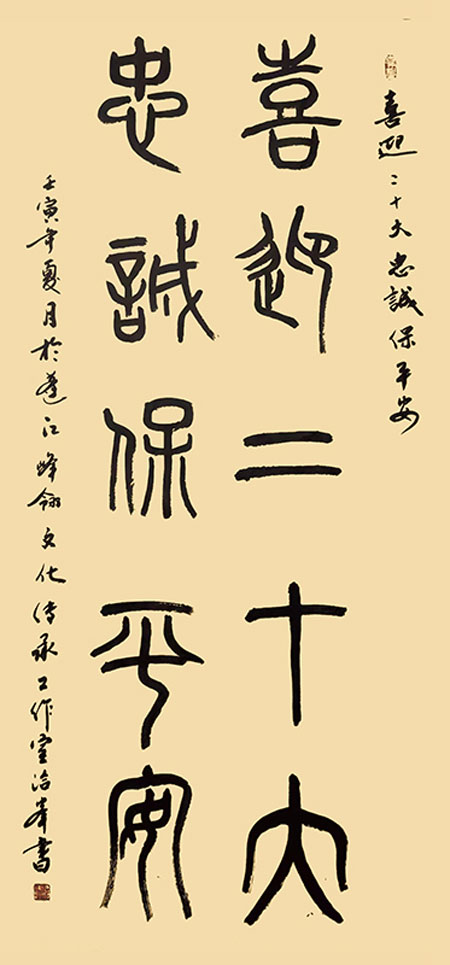 喜迎二十大忠誠保平安
喜迎二十大
忠誠保平安
壬寅年夏月於蓬江峰翎文化傳承工作室治峯書